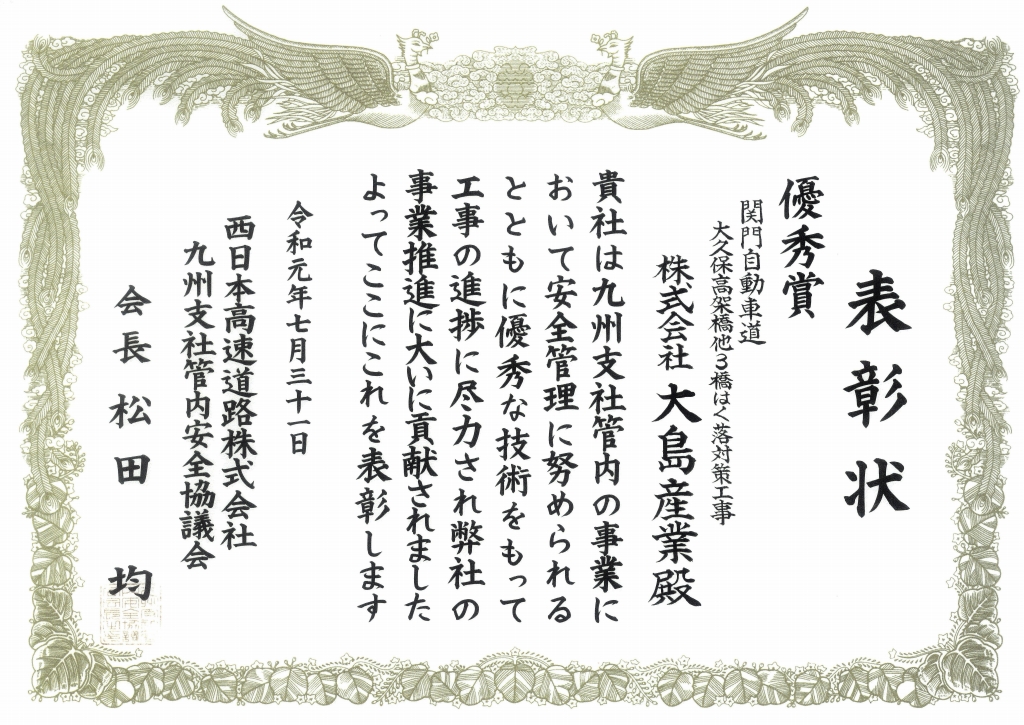 表彰状
優秀賞
関門自動車道
大久保高架橋他3橋はく落対策工事
株式会社 大島産業殿
貴社は九州支社管内の事業に
おいて安全管理に努められる
とともに優秀な技術をもって
工事の進捗に尽力され弊社の
事業推進に大いに貢献されました
よってここにこれを表彰します
令和元年七月三十一日
西日本高速道路株式会社
九州支社管内安全協議会
会長 松田 均